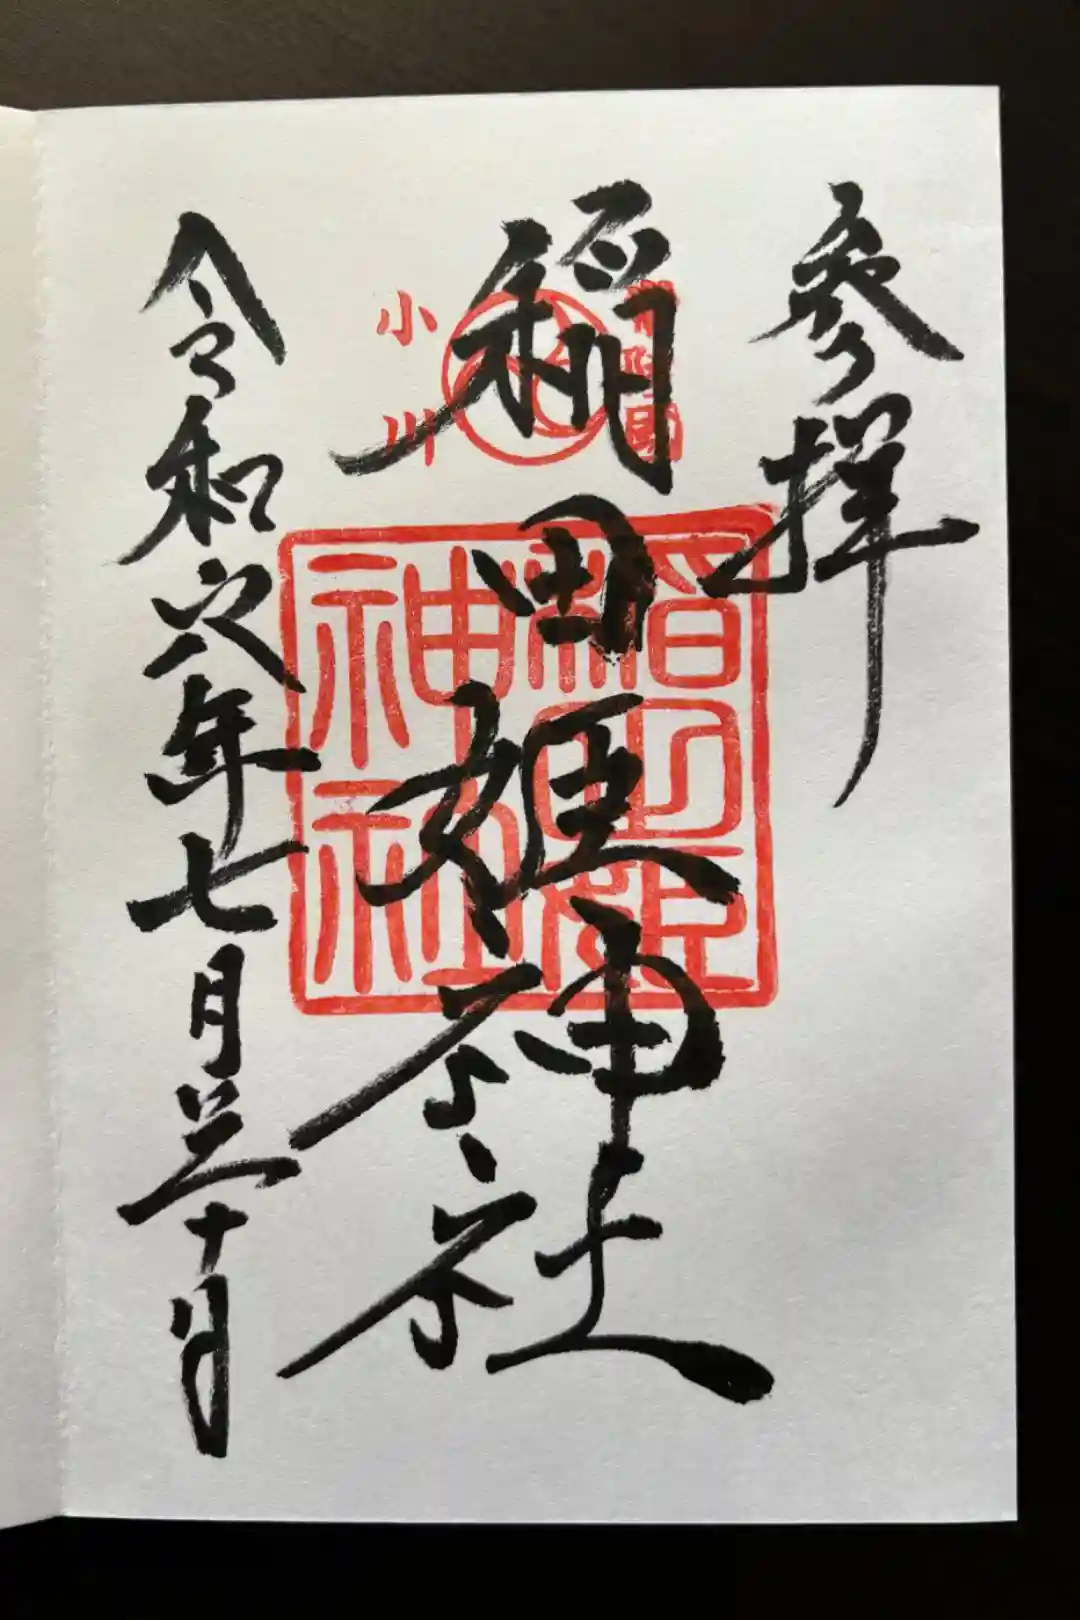 参拝
常陸国
稲田姫神社
小川
稲田姫
神社
令和六年七月三十日